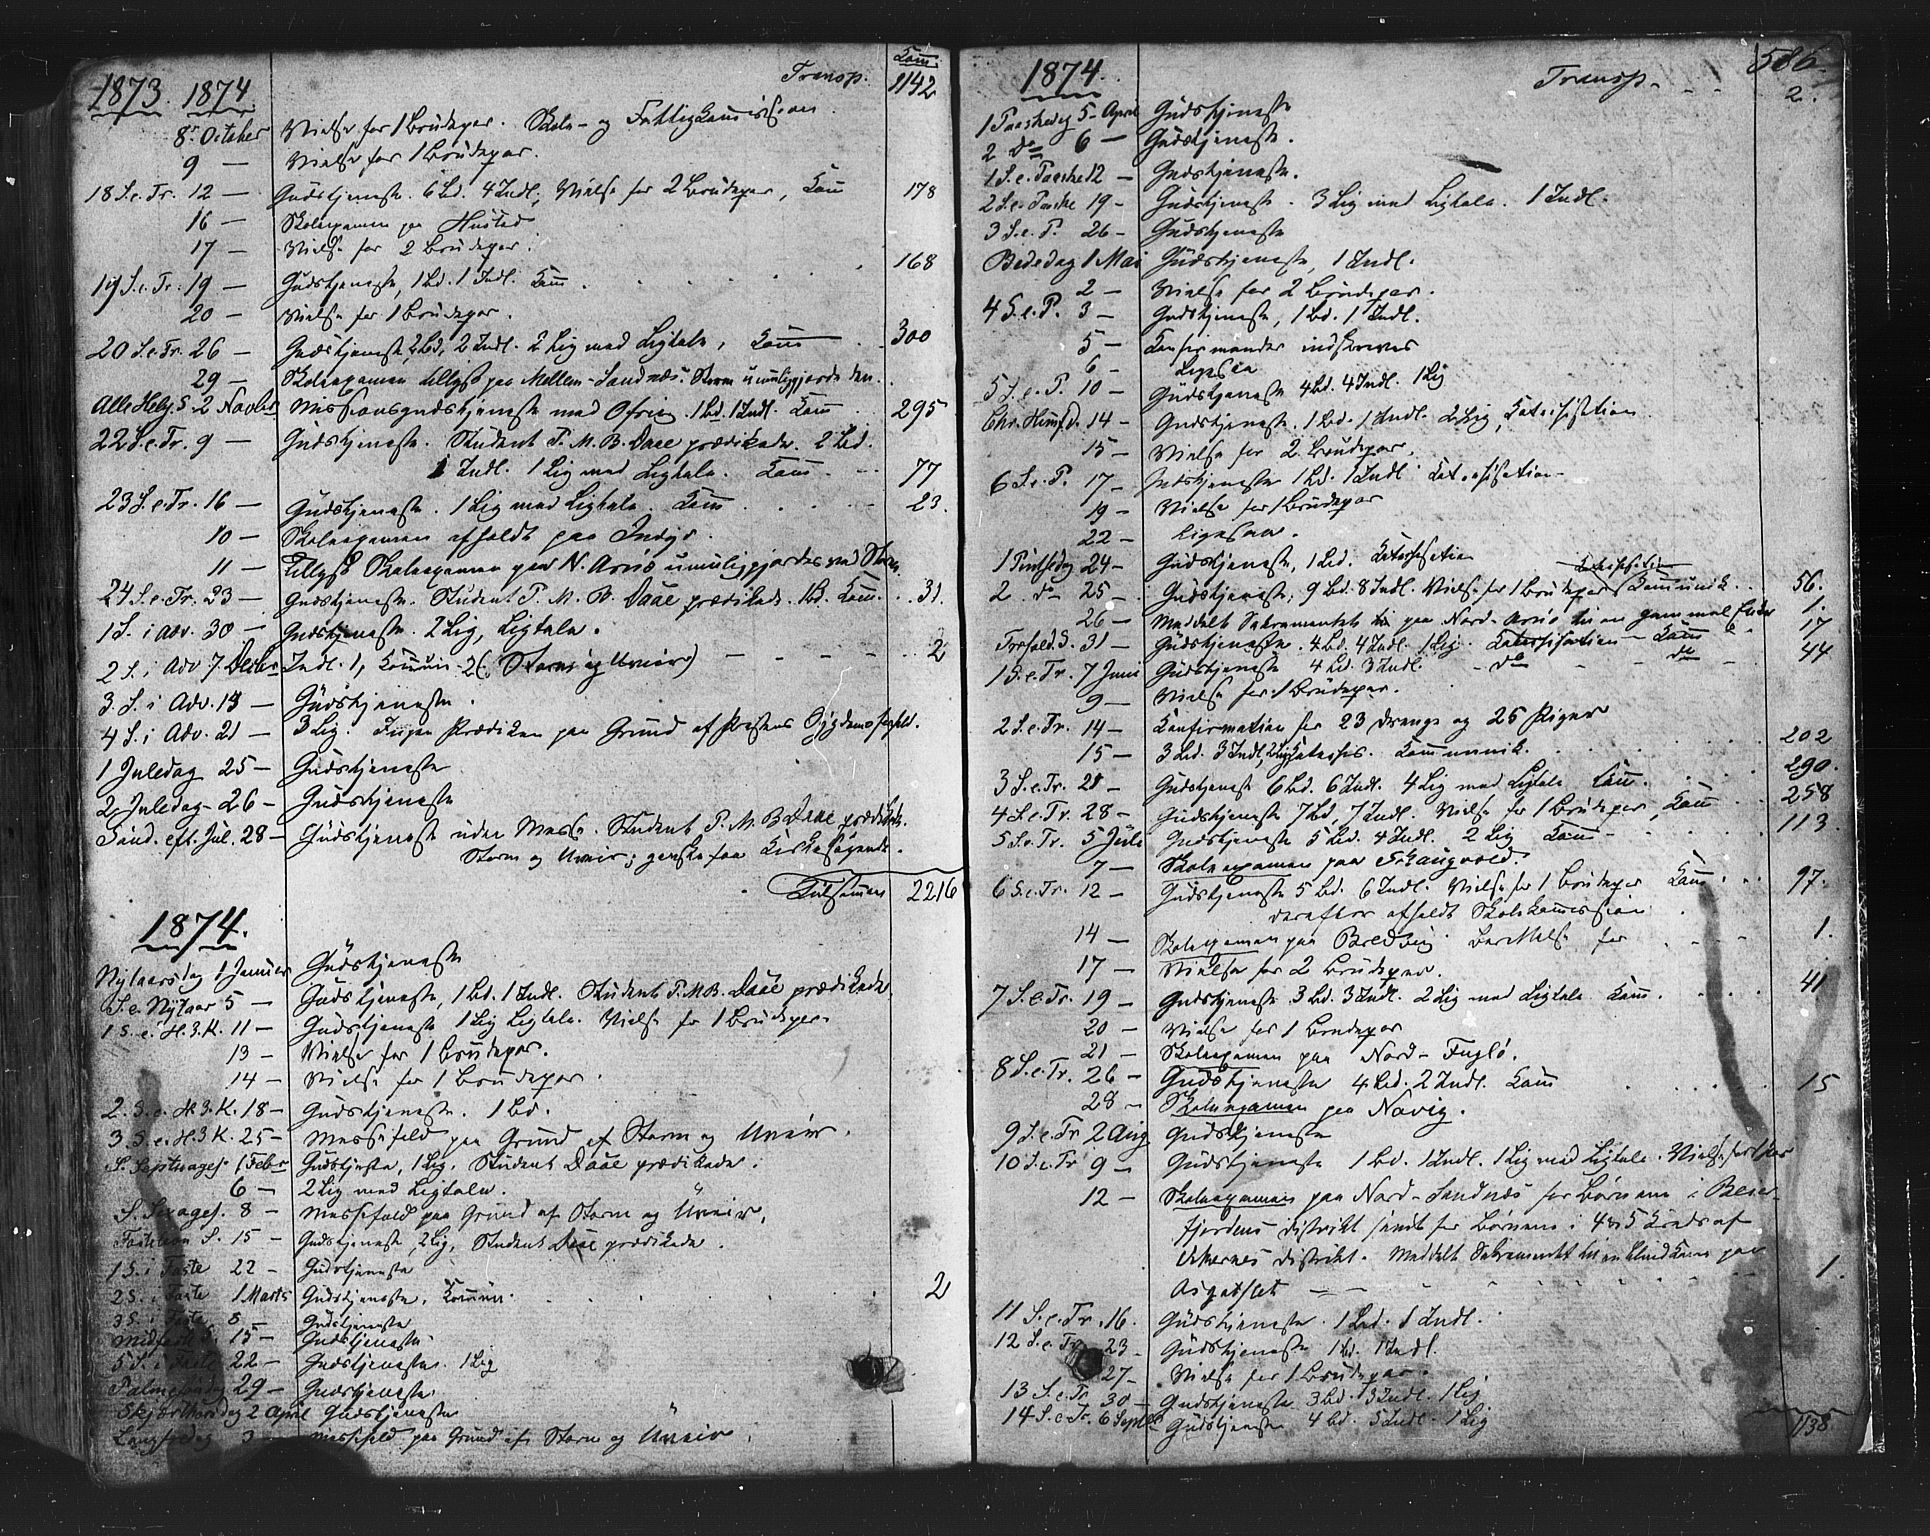 1873. 1874. Transp. Com. 1142
8de October Vielse for 1 Brudepar. Skole- og Fattigkomission
9 — Vielse for 1 Brudepar.
18 S. e. Tr. 12 — Gudstjeneste. 6 Bd. 4 Indl. Vielse for 2 Brudepar, Com 178
16 — Skoleexamen paa Husted
17 — Vielse for 2 Brudepar.
19 S. e. Tr. 19 — Gudstjeneste, 1 Bd. 1 Indl. Com . . . 168
20 — Vielse for 1 Brudepar.
20 S. e. Tr. 26 — Gudstjeneste, 2 Bd, 2 Indl. 2 Lig med Ligtale, Com . 300
29 — Skoleexamen tillyst paa Mellem-Sandnæs. Storm umuliggjorde den.
Alle Helg. S. 2 Novbr Missionsgudstjeneste med Ofring. 1 Bd. 1 Indl. Com . 295
22 S. e. Tr. 9 — Gudstjeneste. Student P. M. B. Daae prædikede. 2 Bd.
1 Indl. 1 Lig med Ligtale. Com. . . 77
23 S. e. Tr. 16 — Gudstjeneste. 1 Lig med Ligtale. Com . . . 23.
10 — Skoleexamen afholdt paa Indyr.
11 — Tillyst Skoleexamen paa N. Arnø umuliggjordes ved Storm.
24 S. e. Tr. 23 — Gudstjeneste. Student P. M. B. Daae prædikede. 1 Bd. Com. . . 31.
1 S. i Adv. 30 — Gudstjeneste. 2 Lig, Ligtale.
2 S. i Adv 7 Decbr Indl. 1, Commun. 2 (Storm og Uveir) — — — 2
3. S. i Adv. 14 — Gudstjeneste.
4 S. i Adv. 21 — 3 Lig. Ingen Prædiken paa Grund af Præstens Sygdomsforfald.
1 Juledag 25 — Gudstjeneste
2 Juledag 26 — Gudstjeneste
Sønd. eft. Jul. 28 — Gudstjeneste uden Messe. Student P. M. B Daae prædikede.
Storm og Uveir; ganske faa Kirkesøgende.
Tilsammen 2216
1874.
Nytaarsdag 1 Januar Gudstjeneste
S. e. Nytaar 5 — Gudstjeneste, 1 Bd. 1 Indl. Student P. M. B. Daae prædikede.
1 S. e. H. 3. K. 11 — Gudstjeneste 1 Lig Ligtale. Vielse for 1 Brudepar.
13 — Vielse for 1 Brudepar.
14 — Vielse for 1 Brudepar.
2. S. e. H. 3. K. 18 — Gudstjeneste. 1 Bd.
3 S. e. H. 3 K. 25 — Messefald paa Grund af Storm og Uveir.
S. Septuages. 1 Febr Gudstjeneste, 1 Lig. Student Daae prædikede.
6 — 2 Lig med Ligtale.
S. Sexages. 8 — Messefald paa Grund af Storm og Uveir.
Fastelavn S. 15 — Gudstjeneste, 2 Lig, Student Daae prædikede.
1 S. i Faste 22 — Gudstjeneste
2 S. i Faste 1 Marts Gudstjeneste. Commun. . . . 2
3 S. i Faste 8 — Gudstjeneste
Midfaste S. 15 — Gudstjeneste
5 S. i Faste 22 — Gudstjeneste. 1 Lig
Palmesøndag 29 — Gudstjeneste.
Skjærthorsdag 2 April Gudstjeneste
Langfredag 3 — Messefald paa Grund af Storm og Uveir.
1874. Transp. . . 586
2.
1 Paaskedag 5 April Gudstjeneste
2 do 6 — Gudstjeneste.
1 S. e. Paaske 12 — Gudstjeneste.
2 S. e. Paaske 19 — Gudstjeneste. 3 Lig med Ligtale. 1 Indl.
3 S. e. P. 26 — Gudstjeneste
Bededag 1 Mai Gudstjeneste, 1 Indl.
2 — Vielse for 2 Brudepar.
4 S. e. P. 3 — Gudstjeneste, 1 Bd. 1 Indl.
5 — Confirmander indskreves
6 — Ligesaa
5 S. e. P. 10 — Gudstjeneste 4 Bd. 4 Indl. 1 Lig
Chr. Himfd. 14 — Gudstjeneste. 1 Bd. 1 Indl. 2 Lig, Catechisation
15 — Vielse for 2 Brudepar.
6 S. e. P. 17 — Gudstjeneste 1 Bd. 1 Indl. Catechisation
19 — Vielse for 1 Brudepar
22 — Ligesaa.
1 Pintsedag 24 — Gudstjeneste, 1 Bd. Catechisation
2 do 25 — Gudstjeneste, 9 Bd. 8 Indl. Vielse for 1 Brudepar, Communik . . 56.
26 — Meddelt Sakramentet paa Nord-Arnø til en gammel Enke 1.
Trefold. S. 31 — Gudstjeneste. 4 Bd. 4 Indl. 1 Lig. Catechisation — Com 17
1 S. e. Tr. 7 Juni Gudstjeneste 4 Bd. 3 Indl. — do — do — 44
9 — Vielse for 1 Brudepar.
2 S. e. Tr. 14 — Confirmation for 23 Drenge og 26 Piger
15 — 3 Bd. 3 Indl, 2 Lig Cateches. Communik. . . . 202
3 S. e. Tr. 21 — Gudstjeneste 6 Bd. 6 Indl. 4 Lig med Ligtale Com. . . . 290.
4 S. e. Tr. 28 — Gudstjeneste 7 Bd, 7 Indl. Vielse for 1 Brudepar, Com . . 258
5 S. e. Tr. 5 Juli Gudstjeneste 5 Bd. 4 Indl. 2 Lig Com — . . . 113.
7 — Skoleexamen paa Frhaugvold.
6 S. e. Tr. 12 — Gudstjeneste 5 Bd. 6 Indl. Vielse for 1 Brudepar Com . . . 97.
derefter afholdt Skolekomission .
14 — Skoleexamen paa Bredvig. Berettelse for . . . 1.
17 — Vielse for 2 Brudepar.
7 S. e. Tr. 19 — Gudstjeneste 3 Bd. 3 Indl. 2 Lig med Ligtale Com. . . 41
20 — Vielse for 1 Brudepar
21 — Skoleexamen paa Nord-Fuglø.
8 S. e. Tr. 26 — Gudstjeneste 4 Bd. 2 Indl. Com . . . 15
28 — Skoleexamen paa Novig.
9 S. e. Tr. 2 Aug Gudstjeneste
10 S. e. Tr 9 — Gudstjeneste 1 Bd. 1 Indl. 1 Lig med Ligtale. Vielse for 1 Par
12 — Skoleexamen paa Nord-Sandnæs for Børnene i Beier-
fjordens Distrikt samt for Børnene i 4 & 5 Kreds af
distrikt. Meddelt Sakramentet til en blind Kone paa
. . . 1.
11 S. e. Tr. 16. Gudstjeneste. 1 Bd. 1 Indl.
12 S. e. Tr. 23 — Gudstjeneste 1 Bd. 1 Indl.
27 — Vielse for 1 Brudepar.
13 S. e. Tr 30 — Gudstjeneste 3 Bd. 3 Indl. 1 Lig
14 S. e. Tr. 6 Septbr Gudstjeneste 4 Bd. 5 Indl. 1 Lig
1138.